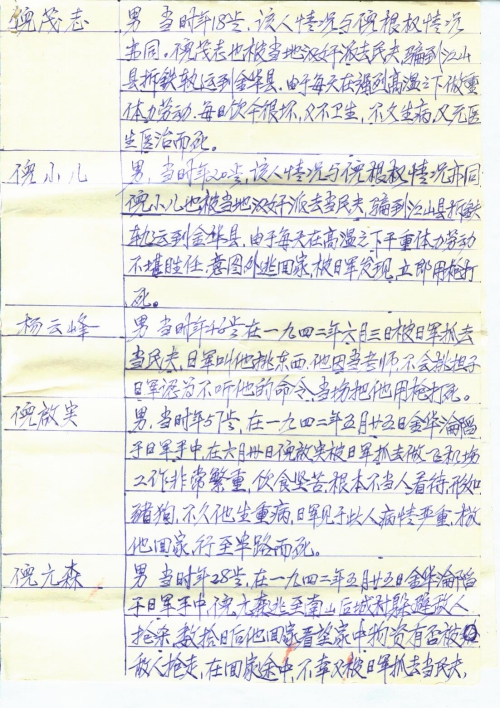 倪茂志 男 当时年18岁，该人情况与倪根权情况
亦同。倪茂志也被当地汉奸派去民夫，骗到江山
县拆铁轨运到金华县。由于每天在强烈高温之下做重
体力劳动。每日饮食很坏，又不卫生，不久生病，又无医
生医治而死。
倪小儿 男，当时年20岁，该人情况与倪根权情况亦同
倪小儿也被当地汉奸派去当民夫，骗到江山县拆铁
轨运到金华县，由于每天在高温之下干重体力劳动
不堪胜任，意图外逃回家，被日军发现，立即用枪打
死。
杨云峰 男 当时年46岁 在一九四二年六月三日被日军抓去
当民夫，日军叫他挑东西，他因当老师，不会挑担子
日军认为不听他的命令，当场把他用枪打死。
倪啟实 男，当时年57岁，在一九四二年五月廿五日金华淪陷
于日军手中，在六月廿日倪啟实被日军抓去做飞机场
工作非常繁重，饮食坚苦，根本不当人看待，形如
豬狗，不久他生重病，日军见于此人病情严重，放
他回家，行至半路而死。
倪元森 男 当时年28岁，在一九四二年五月廿五日金华淪陷
于日军手中，倪元森逃至南山后城村躲避敌人
抢杀，数拾日后他回家看望家中物资有否被
敌人抢走，在回家途中，不幸又被日军抓去当民夫，